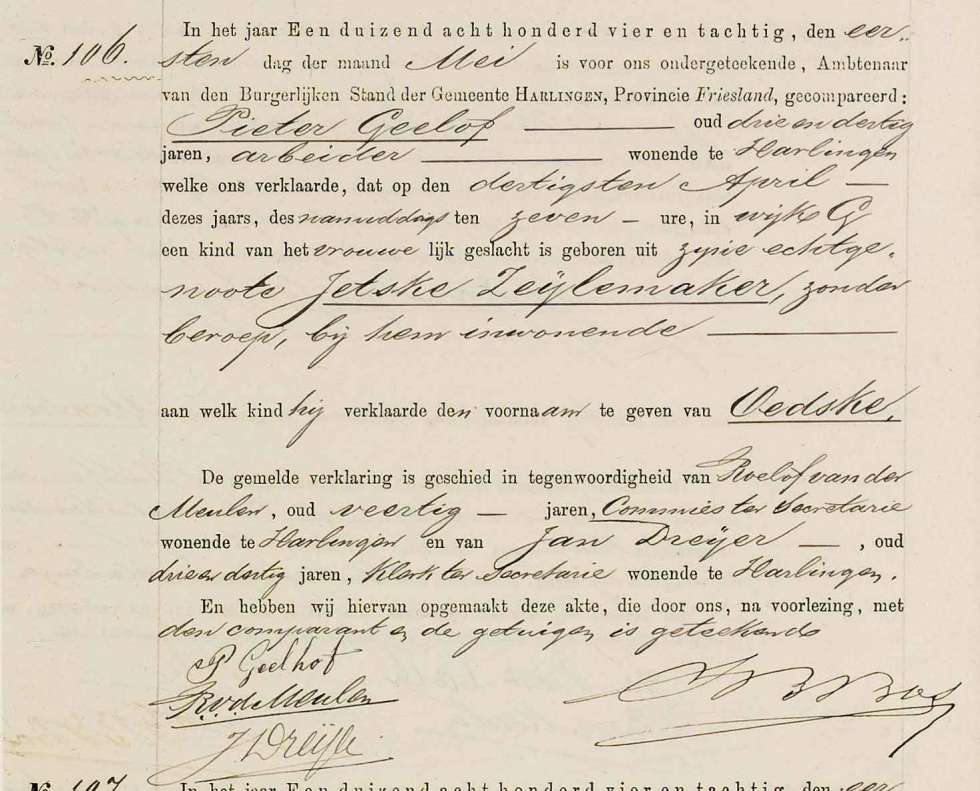 In het jaar Een duizend acht honderd vier en tachtig, den eer-
No. 106. sten dag der maand Mei is voor ons ondergeteekende, Ambtenaar
van den Burgerlijken Stand der Gemeente HARLINGEN, Provincie Friesland, gecompareerd:
Pieter Geelof oud drie en dertig
jaren, arbeider wonende te Harlingen
welke ons verklaarde, dat op den dertigsten April
dezes jaars, des namiddags ten zeven ure, in wijk G
een kind van het vrouwelijk geslacht is geboren uit zijne echtge-
noote Jetske Zeijlemaker, zonder
beroep, bij hem inwonende
aan welk kind hij verklaarde den voornaam te geven van Oedske,
De gemelde verklaring is geschied in tegenwoordigheid van Roelof van der
Meulen, oud veertig jaren, Commies ter Secretarie
wonende te Harlingen en van Jan Dreijer, oud
drie en dertig jaren, Klerk ter Secretarie wonende te Harlingen.
En hebben wij hiervan opgemaakt deze akte, die door ons, na voorlezing, met
den comparant en de getuigen is geteekend
P Geelhof
R. v d Meulen
J Dreijer
No. 107. In het jaar Een duizend acht honderd vier en tachtig, den eer